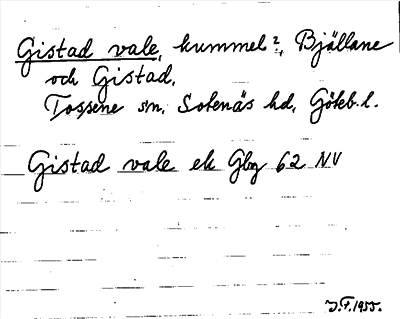 Gistad vale, kummel?, Bjällane
och Gistad.
Tossene sn. Sotenäs hd, Göteb.l.
Gistad vale ek Gbg 62 NV
J.F. 1955.